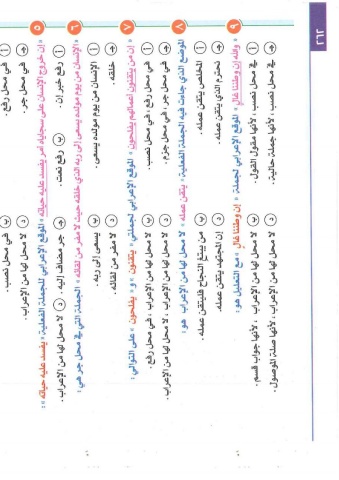 ٢٦٢
٥ « إن خروج الإنسان على سجاياه أمر يفسد عليه حياته » الموقع الإعرابي للجملة الفعلية « يفسد عليه حياته » :
أ في محل رفع . ب في محل نصب .
ج في محل جر . د لا محل لها من الإعراب .
٦ « الإنسان من يوم مولده يسعى إلى ربه الذي خلقه حيث لا مفر من لقائه » الجملة التي في محل جر هي :
أ رفع خبر إن . ب رفع نعت . ج جر مضاف إليه . د لا محل لها من الإعراب .
أ الإنسان من يوم مولده يسعى . ب يسعى إلى ربه .
ج خلقه . د لا مفر من لقائه .
٧ « إن من يتقنون أعمالهم يفلحون » الموقع الإعرابي لجملتي « يتقنون » و « يفلحون » على التوالي :
أ في محل رفع ، في محل نصب . ب لا محل لها من الإعراب ، في محل رفع .
ج في محل جر ، في محل جزم . د لا محل لها من الإعراب ، لا محل لها من الإعراب .
٨ الموضع الذي جاءت فيه الجملة الفعلية « يتقن عمله » لا محل لها من الإعراب هو :
أ المخلص يتقن عمله . ب من يبتغ النجاح فليتقن عمله .
ج نحترم الذي يتقن عمله . د إن المجتهد يتقن عمله .
٩ « والله إن وطننا غالٍ » الموقع الإعرابي لجملة « إن وطننا غالٍ » مع التعليل هو :
أ في محل نصب ، لأنها مقول القول . ب لا محل لها من الإعراب ، لأنها جواب قسم .
ج في محل نصب ، لأنها جملة حالية . د لا محل لها من الإعراب ، لأنها صلة الموصول .